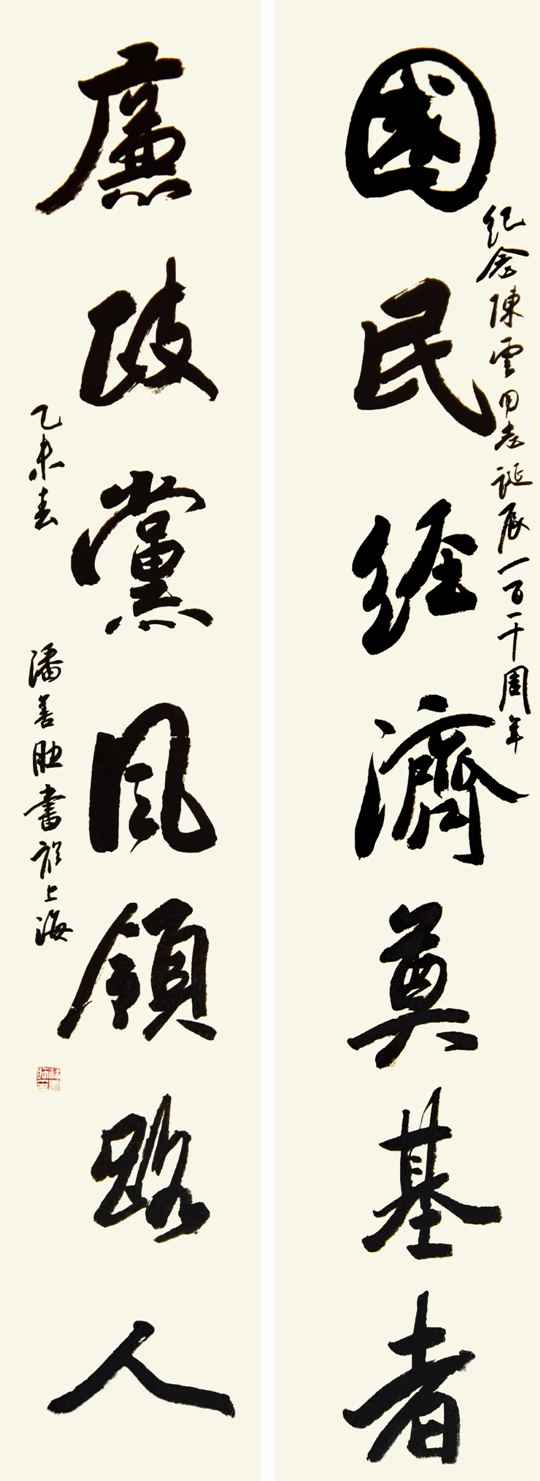 國民经濟奠基者
纪念陳雲同志诞辰一百一十周年
廉政黨风領路人
乙未春
潘善助書於上海